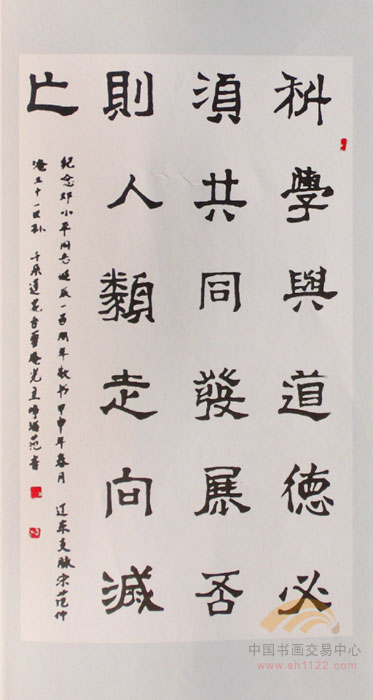 科學與道德必
須共同發展否
則人類走向滅
亡
纪念邓小平同志诞辰一百周年敬书 甲申年春月 辽东支脉宋范仲
淹三十一世孙
中国书画交易中心
www.sh1122.com